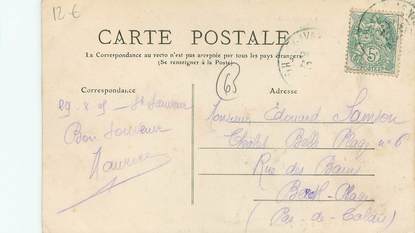 12 €
CARTE POSTALE
La Correspondance au recto n'est pas acceptée par tous les pays étrangers
(Se renseigner à la Poste)
6
Correspondance
Adresse
5
St Sauveur
Bon Souvenir
Maurice
Monsieur Edouard Samson
Chalet Belle Plage n° 6
Rue des Bains
Berck-Plage
(Pas-de-Calais)